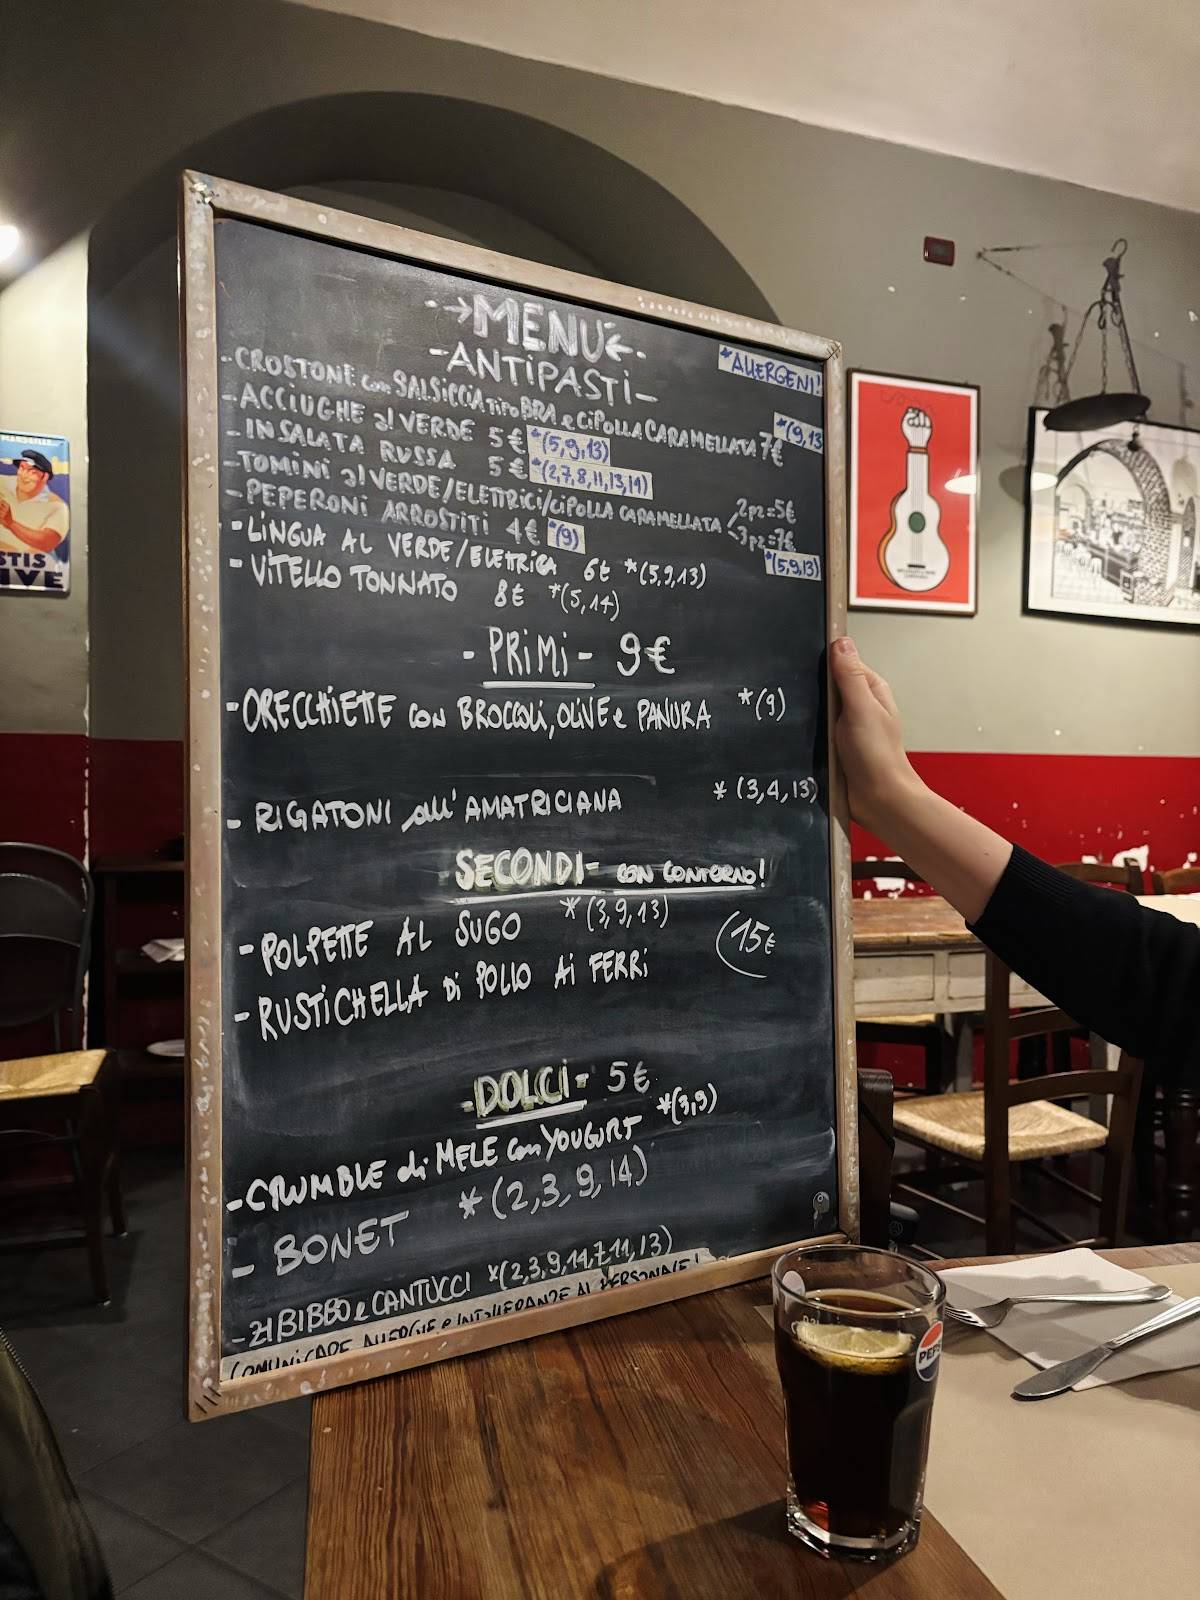 MENU
*ALLERGENI!
-ANTIPASTI-
-CROSTONE con SALSICCIA tipo BRA e CIPOLLA CARAMELLATA 7€ *(9,13
-ACCIUGHE al VERDE 5€ *(5,9,13)
-INSALATA RUSSA 5€ *(2,7,8,11,13,14)
-TOMINI al VERDE/ELETTRICI/CIPOLLA CARAMELLATA 2pz=5€
3pz=7€
*(5,9,13)
-PEPERONI ARROSTITI 4€ *(9)
-LINGUA AL VERDE/ELETTRICA 6€ *(5,9,13)
-VITELLO TONNATO 8€ *(5,14)
-PRIMI- 9€
-ORECCHIETTE con BROCCOLI, OLIVE e PANURA *(9)
-RIGATONI all'AMATRICIANA *(3,4,13)
SECONDI- CON CONTORNO!
-POLPETTE AL SUGO *(3,9,13)
(15€
-RUSTICHELLA Di POLLO Ai FERRi
-DOLCI- 5€
-CRUMBLE di MELE con YOUGURT *(3,9)
-BONET *(2,3,9,14)
-ZIBIBBO e CANTUCCI *(2,3,9,14,7,11,13)
COMUNICARE ALLERGIE e INTOLLERANZE AL PERSONALE!
MARSEILLE
STIS
IVE
PEPSI